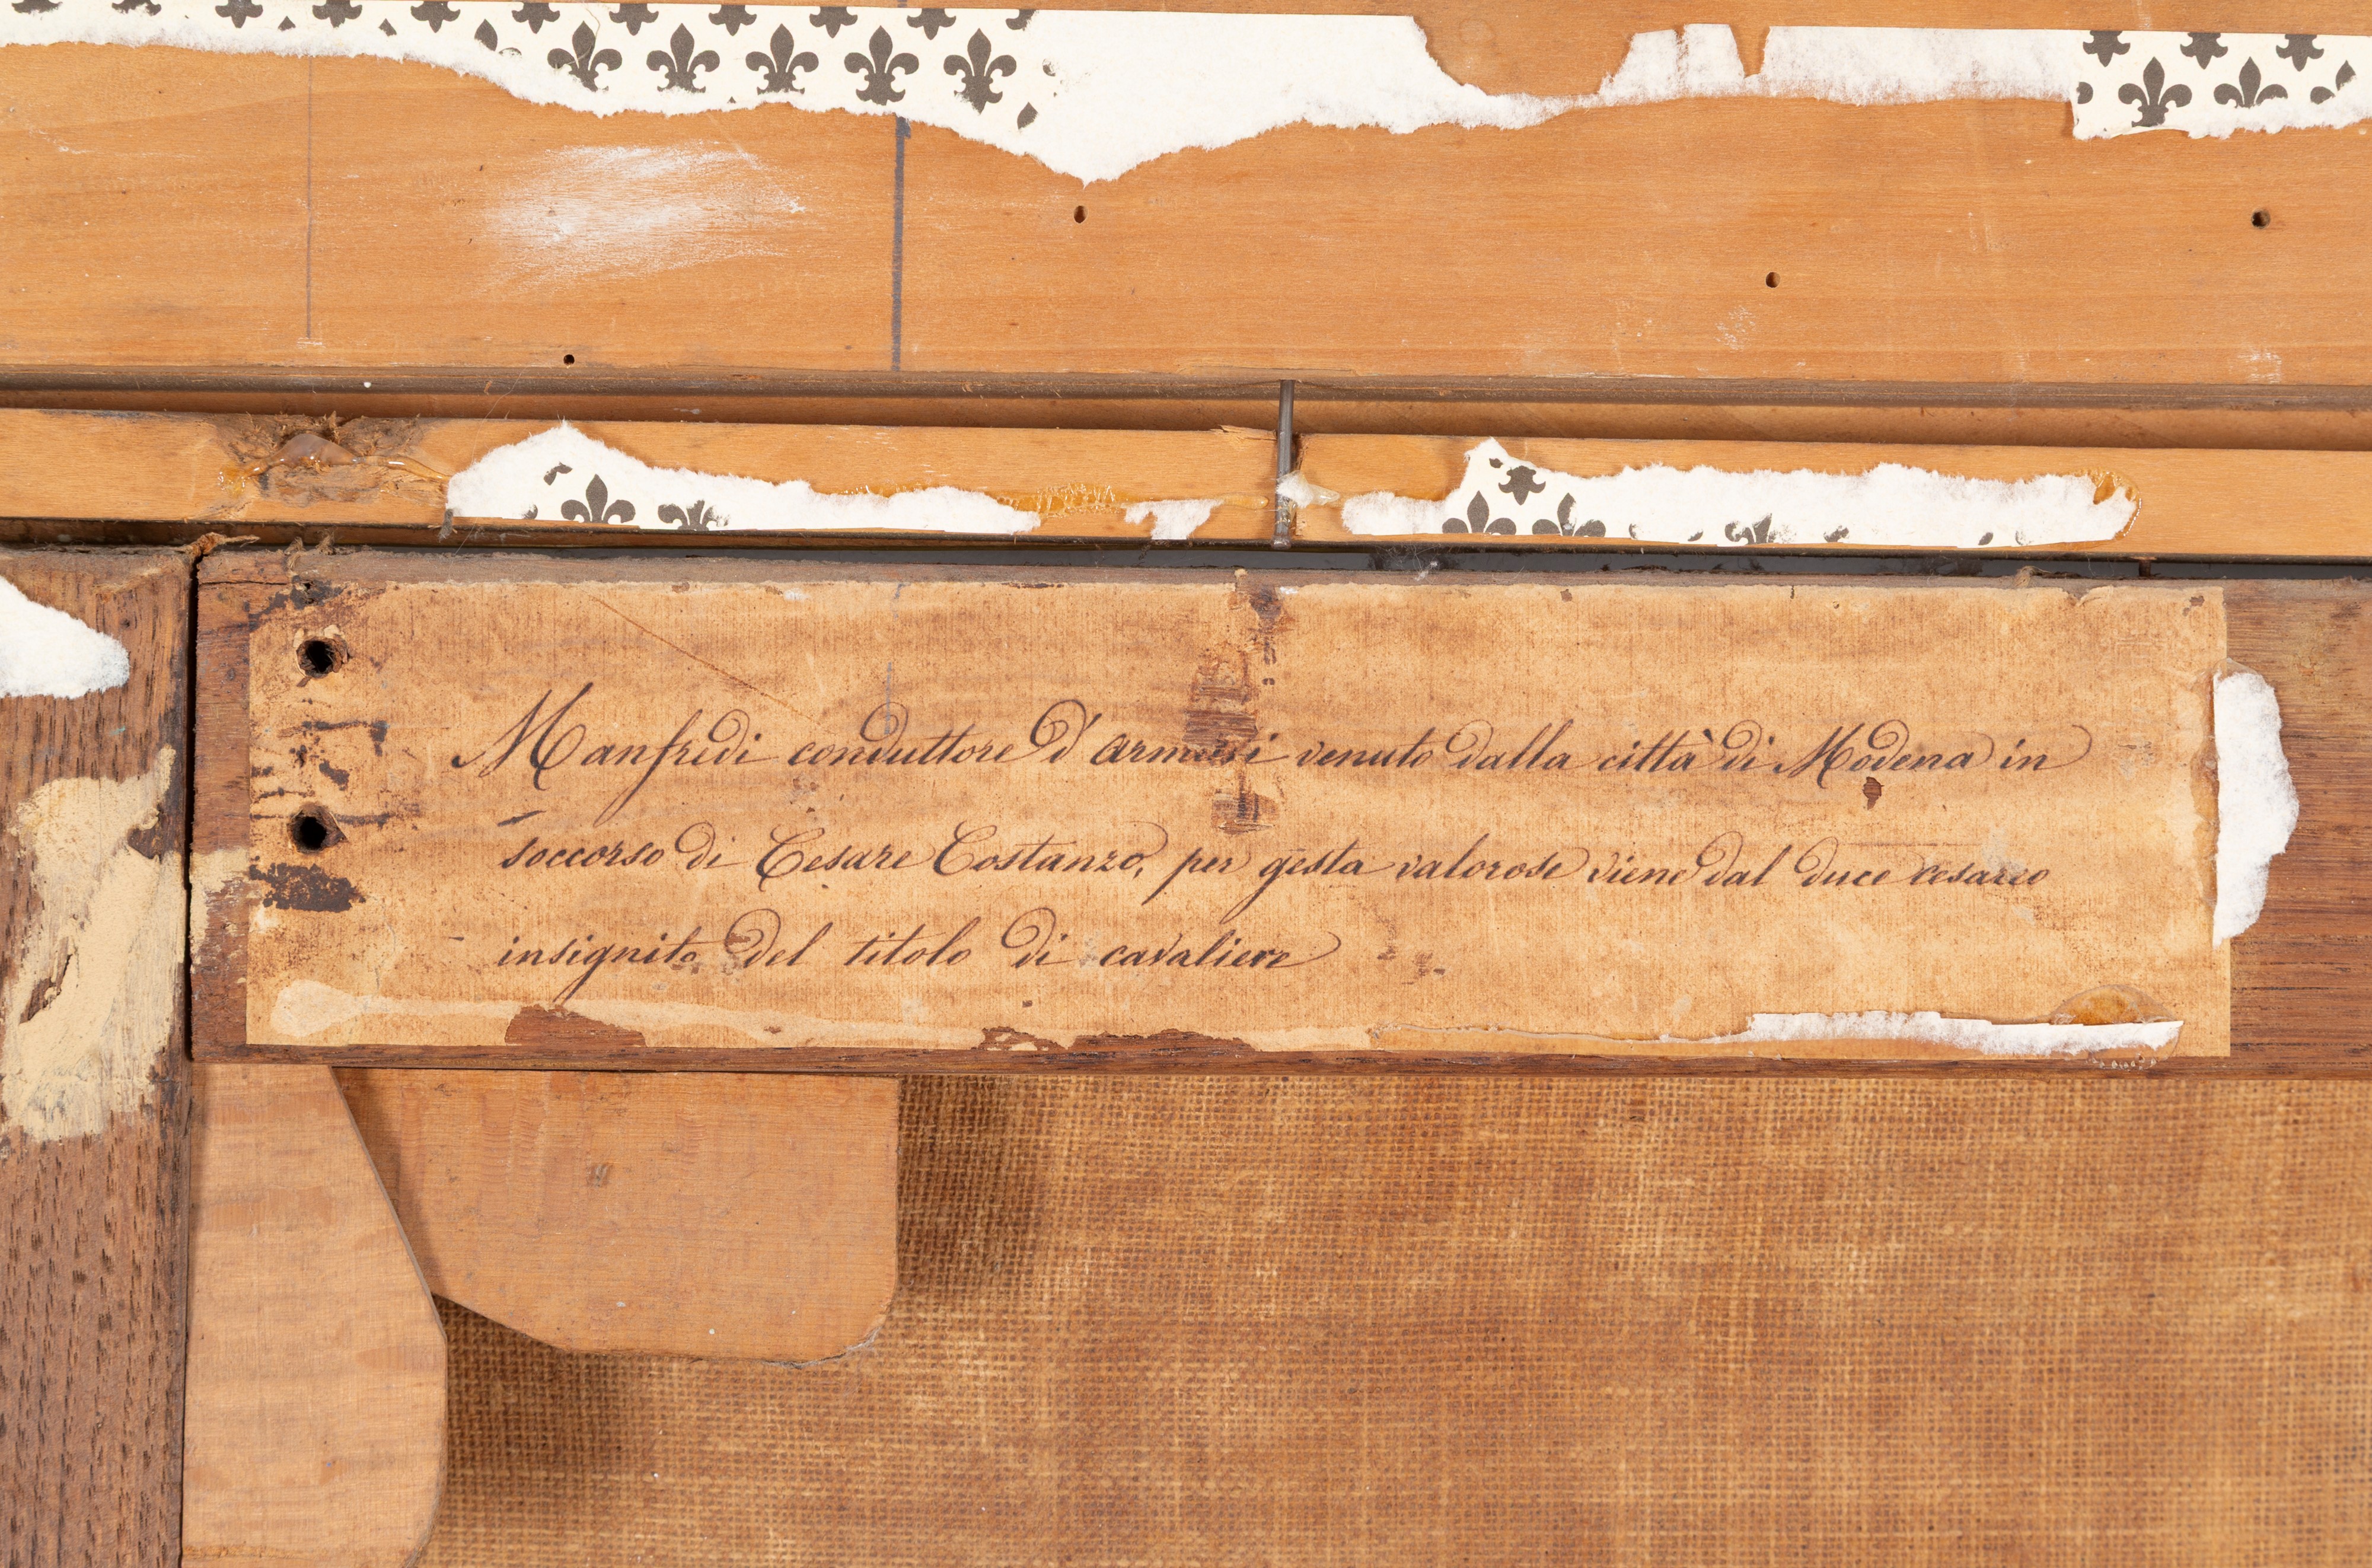 Manfredi conduttore d'armati venuto dalla città di Modena in
soccorso di Cesare Costanzo, per gesta valorose viene dal duce cesareo
insignito del titolo di cavaliere